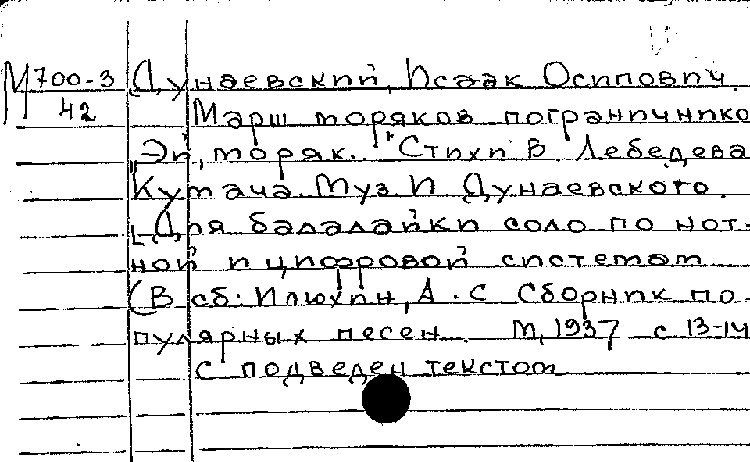 М 700-3 Дунаевский, Исаак Осипович.
42 Марш моряков пограничнико
"Эй, моряк..." Стихи В Лебедева
Кумача. Муз И Дунаевского.
[Для балалайки соло по нот-
ной и цифровой системам
(В сб: Илюхин, А. С Сборник по-
пулярных песен. М, 1937 с 13-14
с подведен текстом